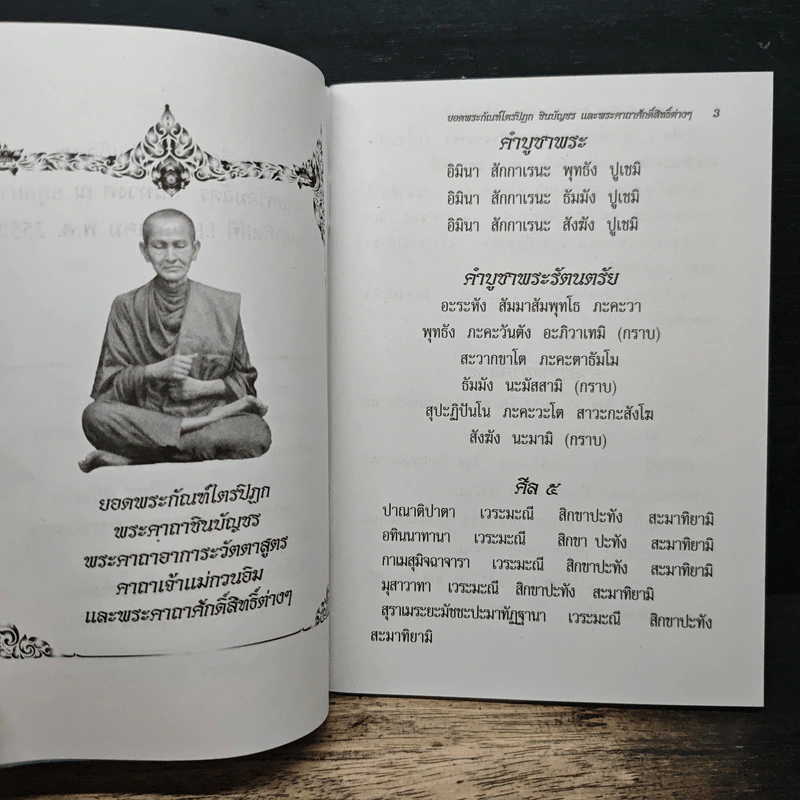 ยอดพระกัณฑ์ไตรปิฎก
พระคาถาชินบัญชร
พระคาถาอาการะวัตตาสูตร
คาถาเจ้าแม่กวนอิม
และพระคาถาศักดิ์สิทธิ์ต่างๆ
ยอดพระกัณฑ์ไตรปิฎก ชินบัญชร และพระคาถาศักดิ์สิทธิ์ต่างๆ 3
คำบูชาพระ
อิมินา สักกาเรนะ พุทธัง ปูเชมิ
อิมินา สักกาเรนะ ธัมมัง ปูเชมิ
อิมินา สักกาเรนะ สังฆัง ปูเชมิ
คำบูชาพระรัตนตรัย
อะระหัง สัมมาสัมพุทโธ ภะคะวา
พุทธัง ภะคะวันตัง อะภิวาเทมิ (กราบ)
สะวากขาโต ภะคะตาธัมโม
ธัมมัง นะมัสสามิ (กราบ)
สุปะฏิปันโน ภะคะวะโต สาวะกะสังโฆ
สังฆัง นะมามิ (กราบ)
ศีล ๕
ปาณาติปาตา เวระมะณี สิกขาปะทัง สะมาทิยามิ
อทินนาทานา เวระมะณี สิกขา ปะทัง สะมาทิยามิ
กาเมสุมิจฉาจารา เวระมะณี สิกขาปะทัง สะมาทิยามิ
มุสาวาทา เวระมะณี สิกขาปะทัง สะมาทิยามิ
สุราเมระยะมัชชะปะมาทัฏฐานา เวระมะณี สิกขาปะทัง
สะมาทิยามิ